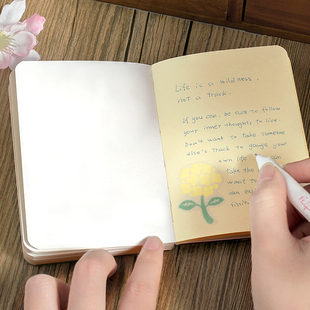 Life is a wildness,
not a track.
If you can, be sure to follow
your inner thoughts to live.
Don't want to take someone
else's track to gauge your
own life
take the
want to
can